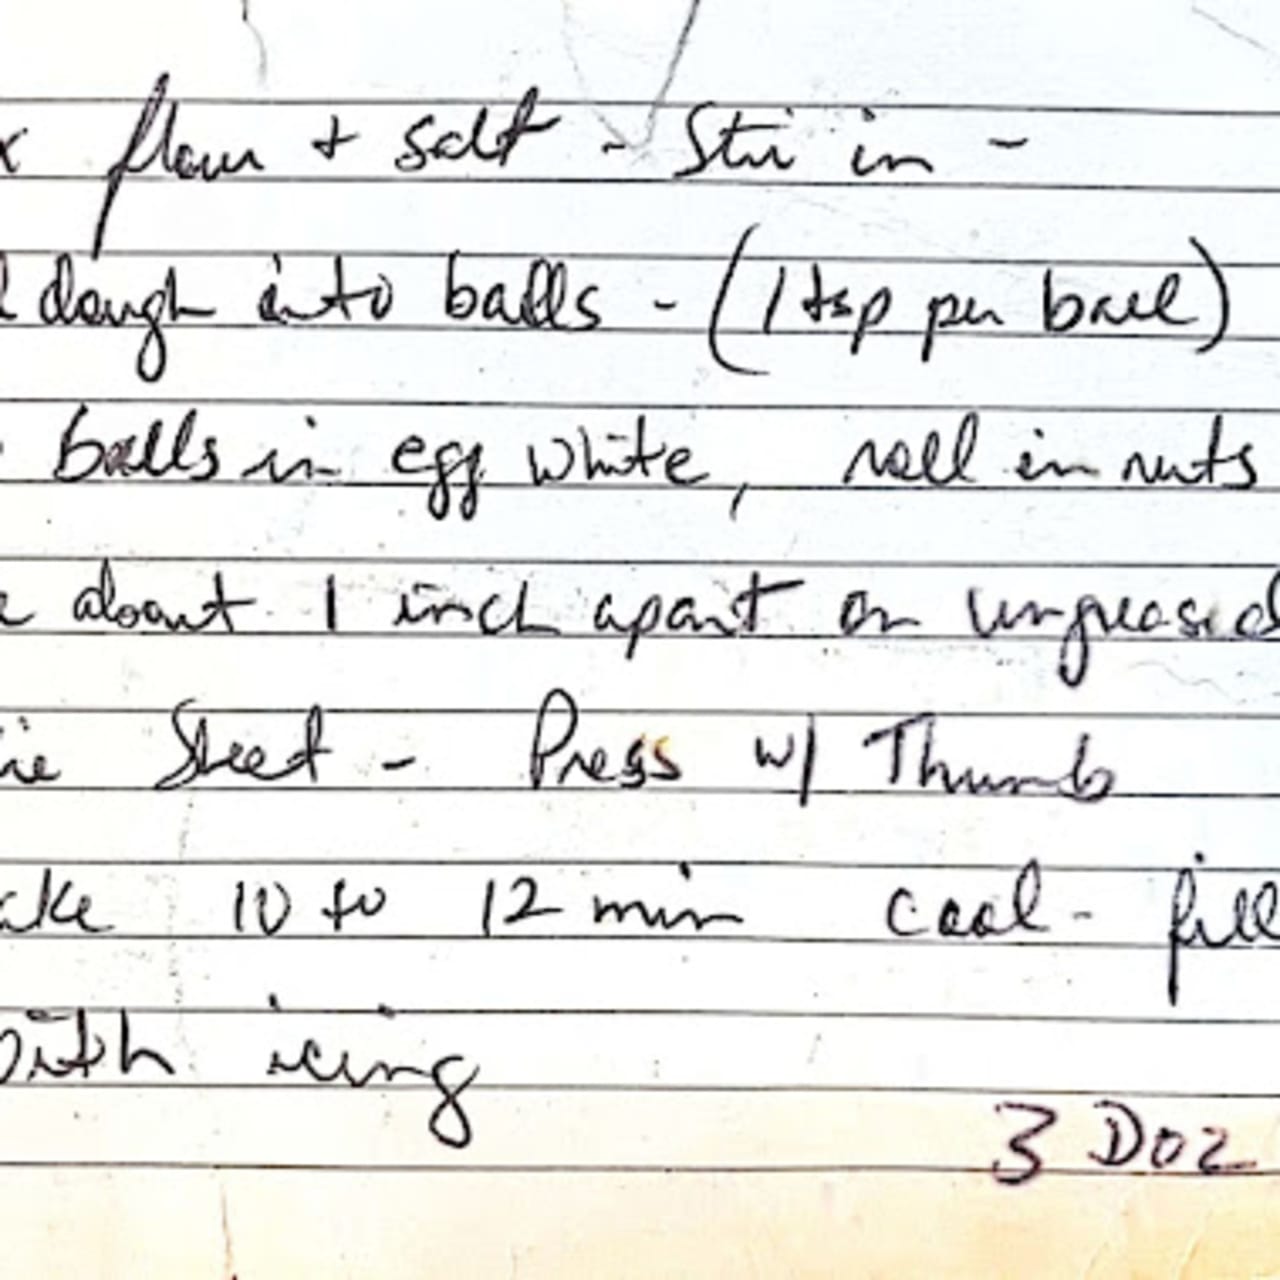 x flour + salt - Stir in -
dough into balls - (1 tsp per ball)
balls in egg white, roll in nuts
about 1 inch apart on ungreased
ie Sheet - Press w/ Thumb
ake 10 to 12 min cool - fill
with icing
3 Doz